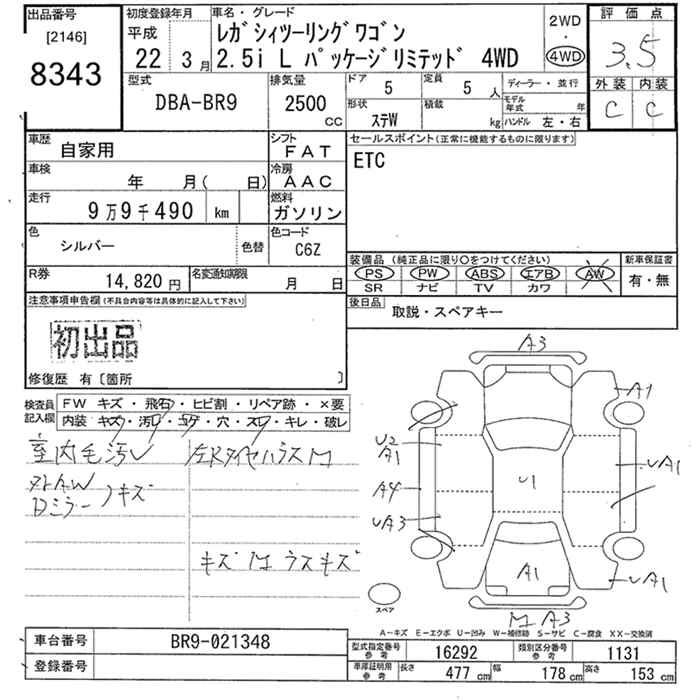 出品番号
[2146]
8343
初度登録年月
平成
22 3月
車名・グレード
レガシィツーリングワゴン
2.5i L パッケージリミテッド 4WD
2WD
・
4WD
評価点
3.5
外装 内装
C C
型式
DBA-BR9
排気量
2500
CC
ドア 5
定員 5 人
形状 ステW
積載 kg
ディーラー・並行
モデル年式 年
ハンドル 左・右
車歴
自家用
シフト
FAT
車検
年 月( 日)
冷房
AAC
走行
9万9千490 km
燃料
ガソリン
色
シルバー
色替
色コード
C6Z
R券
14,820円
名変通知期限
月 日
セールスポイント(正常に機能するものに限ります)
ETC
装備品(純正品に限り○をつけてください)
PS PW ABS エアB AW
SR ナビ TV カワ
新車保証書
有・無
後日品
取説・スペアキー
注意事項申告欄(不具合内容等は具体的に記入して下さい)
初出品
修復歴 有〔箇所 〕
検査員記入欄
FW キズ・飛石・ヒビ割・リペア跡・×要
内装 キズ・汚レ・コゲ・穴・スレ・キレ・破レ
室内毛汚レ
左Rタイヤハウス M
外AW
Dミラー キズ
キズ M ラスキズ
A3
A1
U2
A1
A4
UA3
U1
UA1
A1
UA1
M A3
スペア
A−キズ E−エクボ U−凹み W−補修跡 S−サビ C−腐食 XX−交換済
車台番号
BR9-021348
登録番号
型式指定番号 参考
16292
類別区分番号 参考
1131
車庫証明用 参考
長さ 477 cm
幅 178 cm
高さ 153 cm